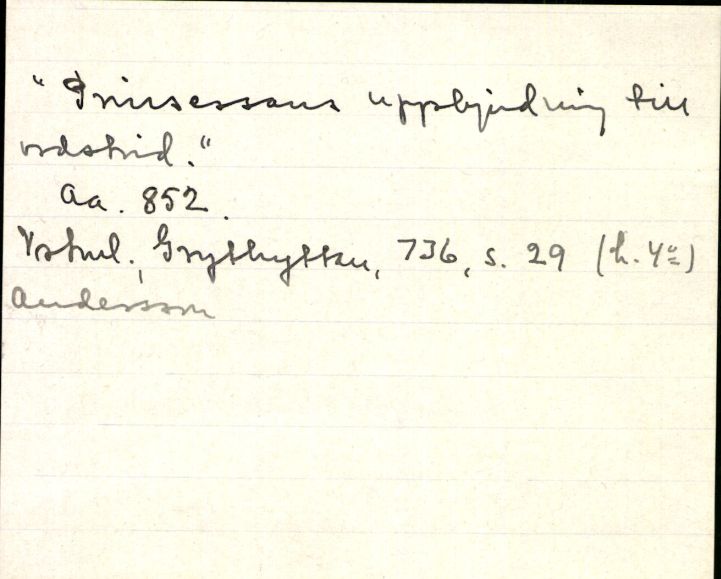 "Prinsessans uppbjudning till
ordstrid."
Aa. 852.
Vstml., Grythyttan, 736, s. 29 (h. 4º)
Andersson